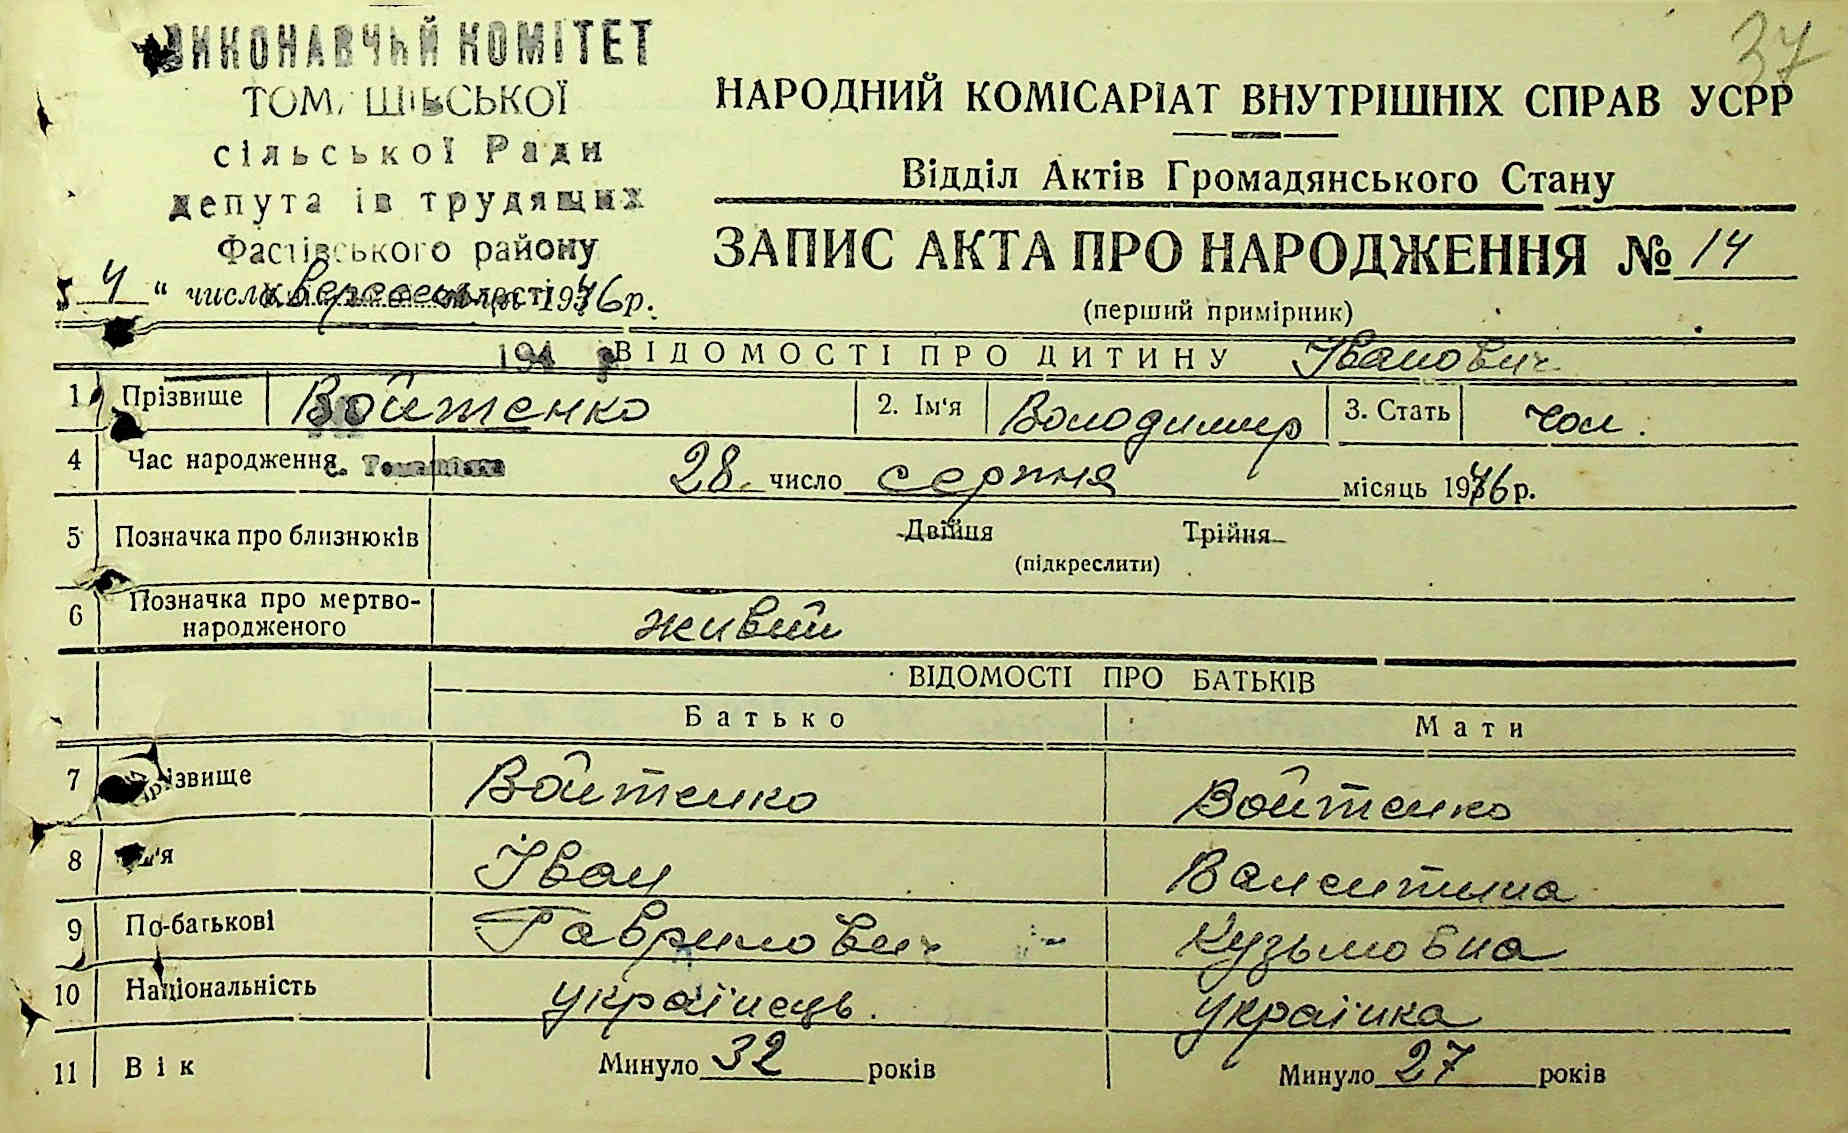 ВИКОНАВЧИЙ КОМІТЕТ
ТОМАШІВСЬКОЇ
сільської Ради
депутатів трудящих
Фастівського району
37
НАРОДНИЙ КОМІСАРІАТ ВНУТРІШНІХ СПРАВ УСРР
Відділ Актів Громадянського Стану
ЗАПИС АКТА ПРО НАРОДЖЕННЯ № 14
(перший примірник)
„ 4 “ числа вересень 1946 р.
194 р.
ВІДОМОСТІ ПРО ДИТИНУ Іванович
1 Прізвище Войтенко 2. Ім'я Володимир 3. Стать чол.
4 Час народження с. Томашівка 28 число серпня місяць 1946 р.
5 Позначка про близнюків Двійня Трійня
(підкреслити)
6 Позначка про мертво-
народженого живий
ВІДОМОСТІ ПРО БАТЬКІВ
Батько Мати
7 Прізвище Войтенко Войтенко
8 Ім'я Іван Валентина
9 По-батькові Гаврилович Кузьмовна
10 Національність українець. українка
11 Вік Минуло 32 років Минуло 27 років